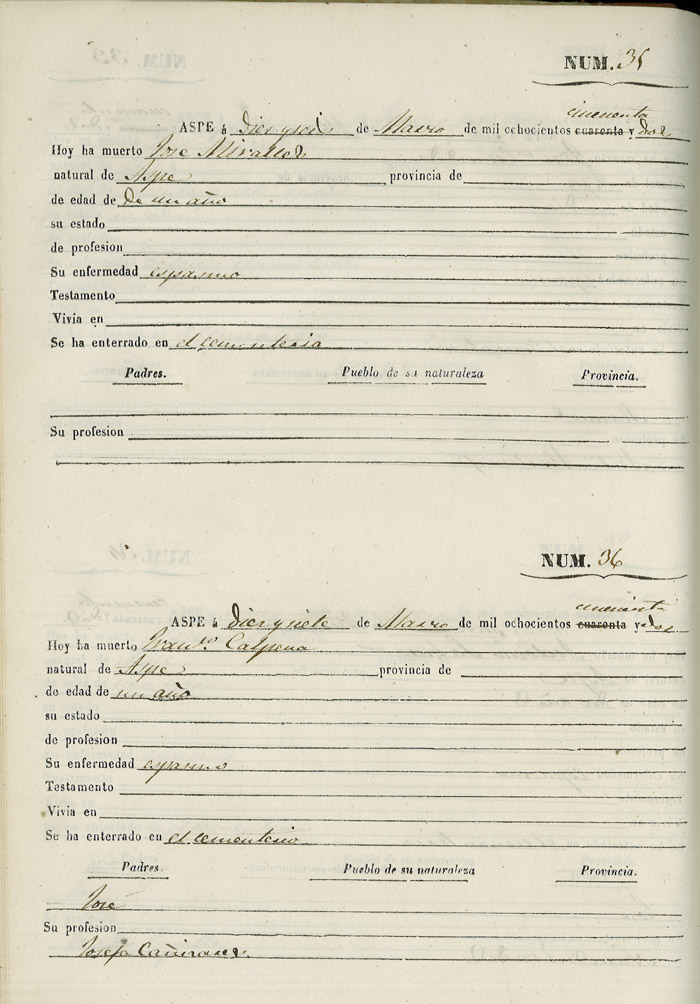 NUM. 35
cincuenta
ASPE á Diez y seis de Marzo de mil ochocientos cuarenta y dos
Hoy ha muerto Jose Miralles
natural de Aspe provincia de
de edad de de un año
su estado
de profesion
Su enfermedad espasmo
Testamento
Vivia en
Se ha enterrado en el cementerio
Padres. Pueblo de su naturaleza Provincia.
Su profesion
NUM. 36
cincuenta
ASPE á Diez y siete de Marzo de mil ochocientos cuarenta y dos
Hoy ha muerto Fran.co Calpena
natural de Aspe provincia de
de edad de un año
su estado
de profesion
Su enfermedad espasmo
Testamento
Vivia en
Se ha enterrado en el cementerio
Padres. Pueblo de su naturaleza Provincia.
José
Su profesion
Josefa Cañizares.